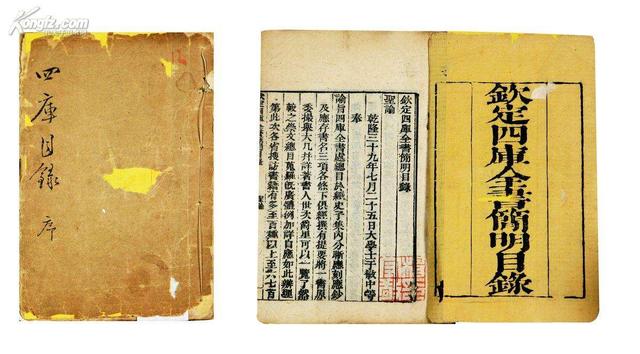 Kongfz.com
四庫目錄
序
欽定四庫全書簡明目錄
欽定四庫全書簡明目錄
聖諭
乾隆三十九年七月二十五日大學士于敏中等
奉
諭旨四庫全書處總目於經史子集內分晰應刻應鈔
及應存書名三項各條下俱經撰有提要將一書原
委撮舉大凡并詳著書人世次爵里可以一覽了然
較之崇文總目蒐羅既廣體例加詳自應如此辦理
第此次各省搜訪書籍有多至百種以上至六七百
聖諭